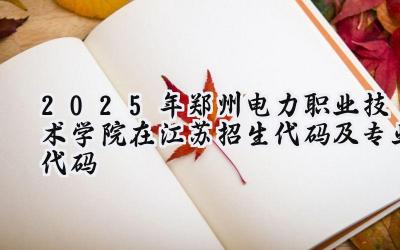 2025年郑州电力职业技
术学院在江苏招生代码及专业
代码